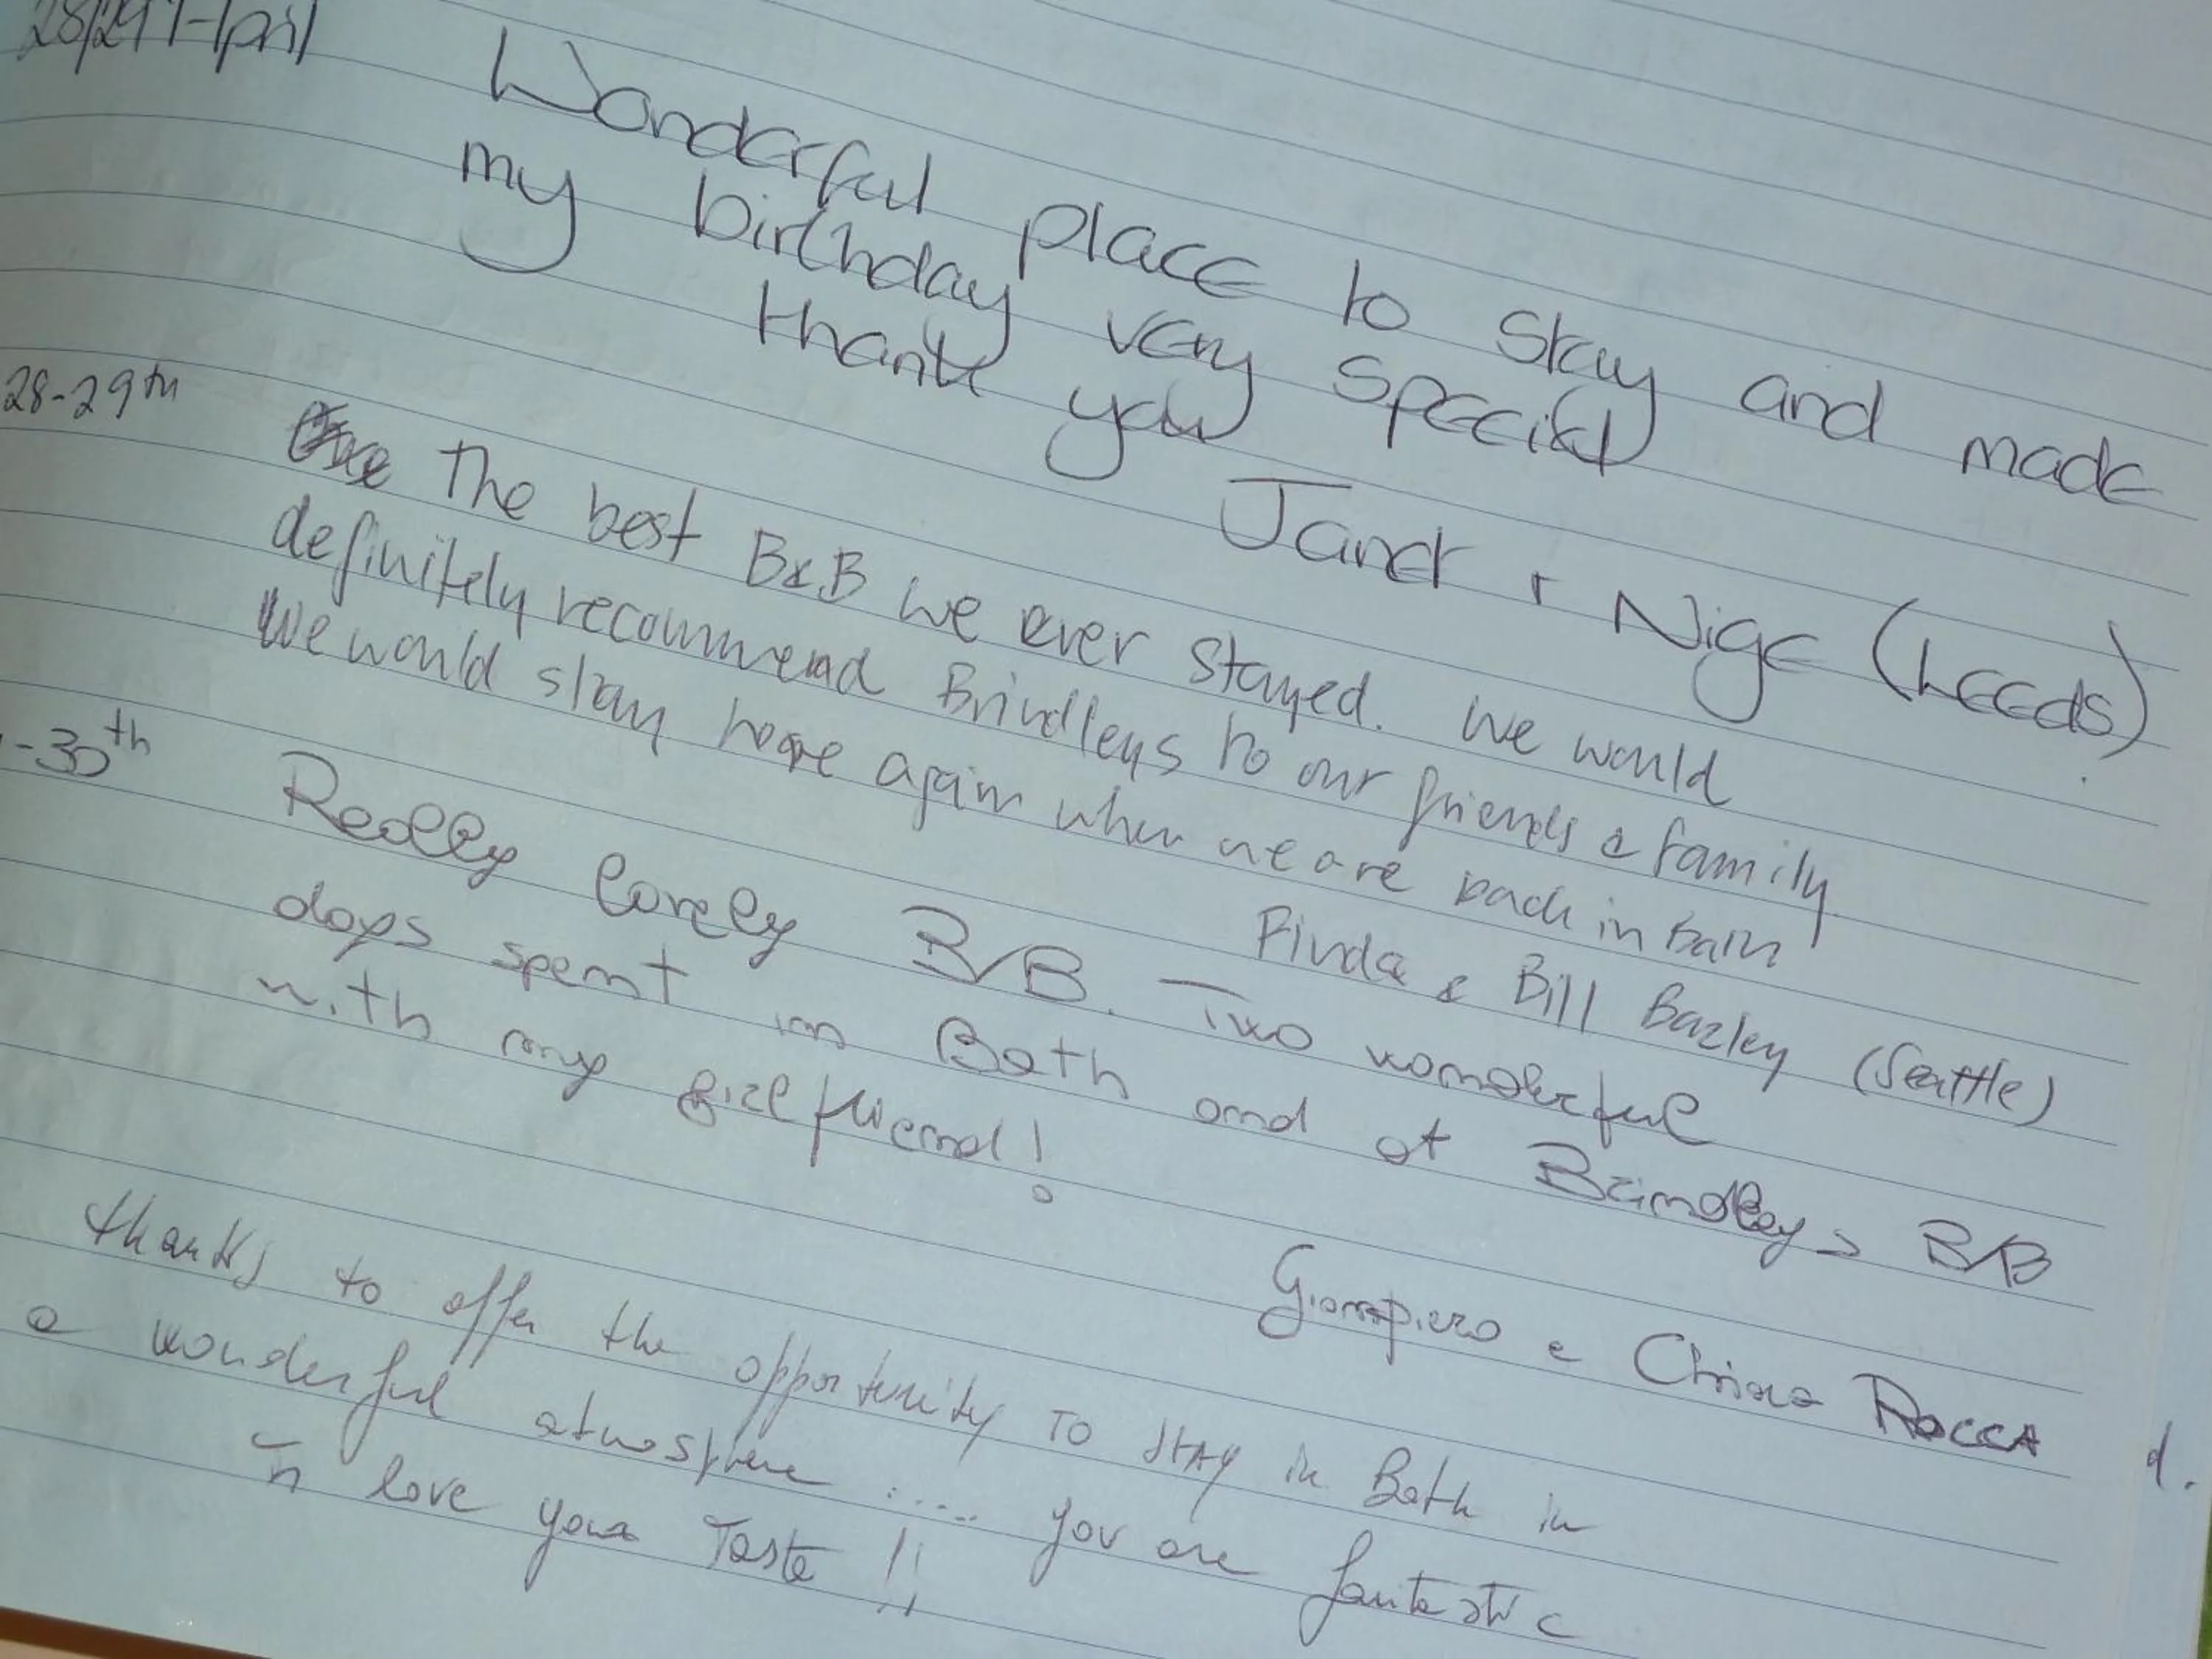 28/29 April
Wonderful place to stay and made
my birthday very special
thank you
Janet + Nige (Leeds)
28-29th
The best B&B we ever stayed. We would
definitely recommend Brindleys to our friends & family
We would stay here again when we are back in Bath
Pinda & Bill Bazley (Seattle)
-30th
Really lovely B/B. Two wonderful
days spent in Bath and at Brindleys B/B
with my girlfriend!
Giampiero e Chiara ROCCA
thanks to offer the opportunity TO STAY in Bath in
a wonderful atmosphere ..... you are fantastic
love your Taste !!
d.